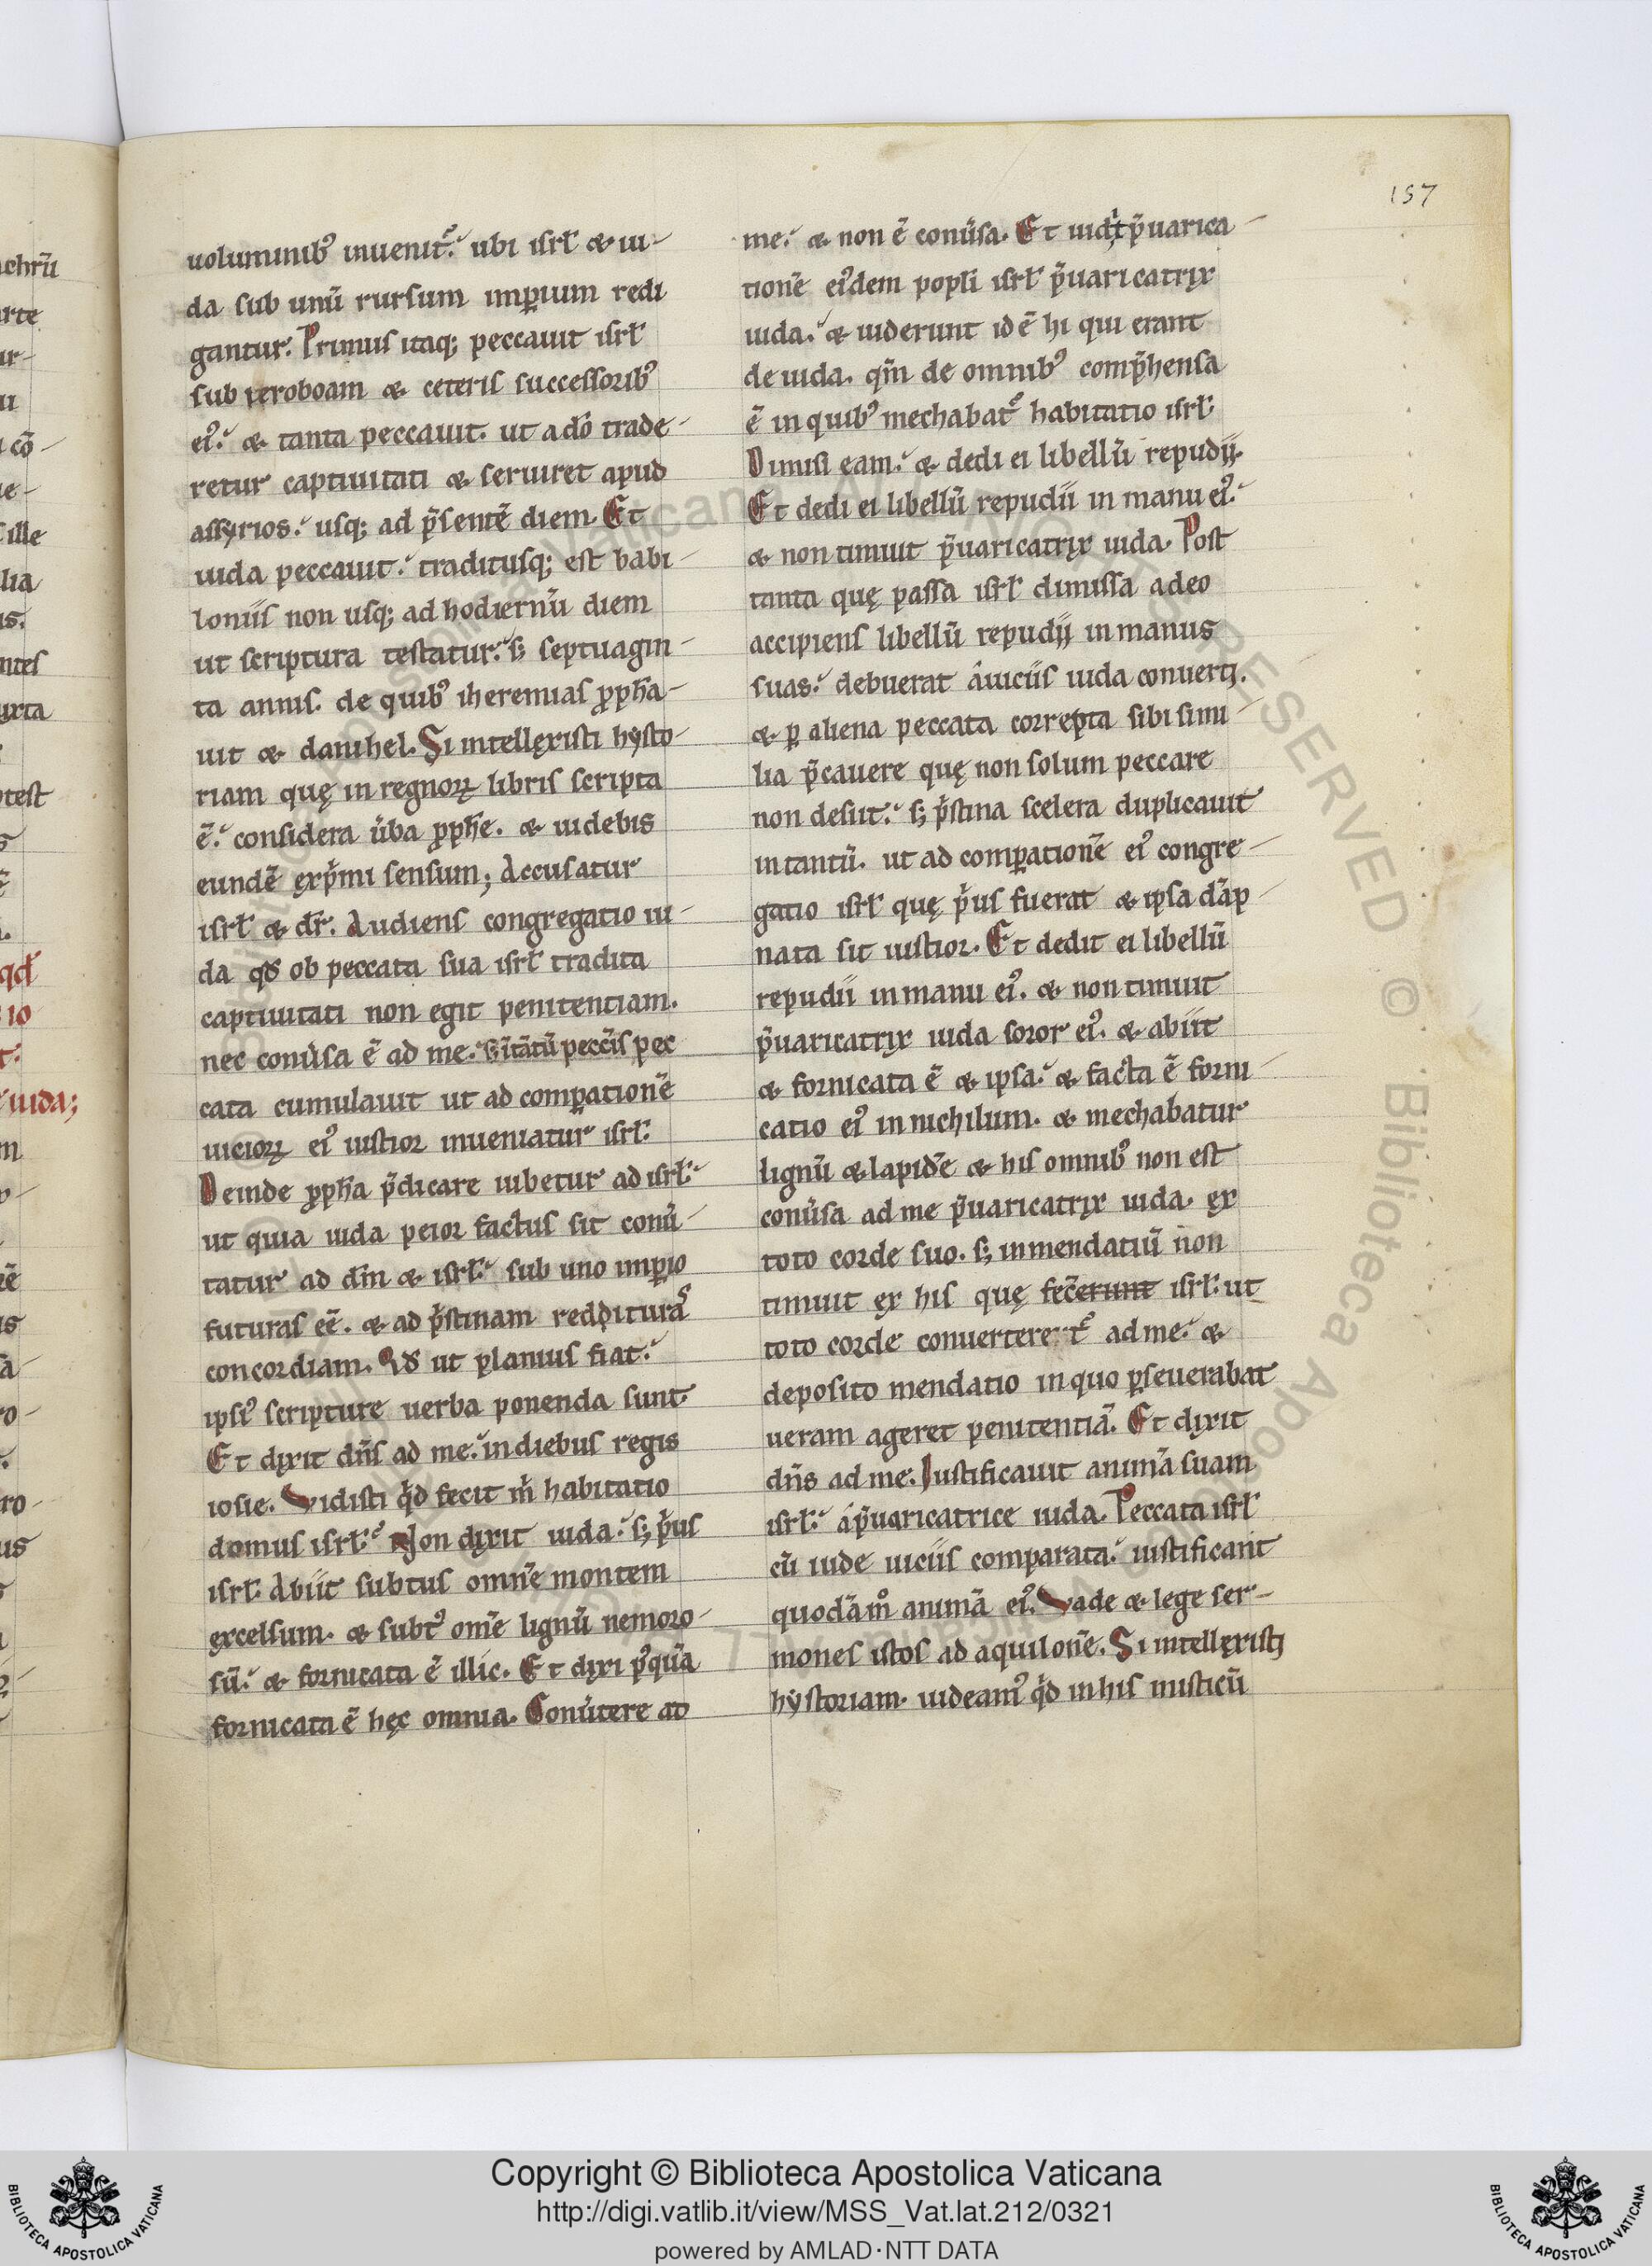 157
uoluminibꝰ inuenit᷑. ubi isrł & iu-
da sub unū rursum imꝑium redi
gantur. Primus itaq; peccauit isrł
sub ieroboam & ceteris successoribꝰ
eiꝰ. & tanta peccauit. ut a dō trade-
retur captiuitati & seruiret apud
assyrios. usq; ad p̄sentē diem. Et
iuda peccauit. traditusq; est babi-
loniis non usq; ad hodiernū diem
ut scriptura testatur. s; septuagin-
ta annis. de quibꝰ iheremias ꝓph̄a-
uit & danihel. Si intellęxisti hysto-
riam quę in regnoꝝ libris scripta
ē. considera ūba ꝓph̄e. & uidebis
eundē exp̄mi sensum; Accusatur
isrł & dr̄. Audiens congregatio iu-
da qđ ob peccata sua isrł tradita
captiuitati non egit penitentiam.
nec conūsa ē ad me. s; ītātū pecc̄is pec
cata cumulauit ut ad comꝑationē
uicioꝝ eiꝰ iustior inueniatur isrł.
Deinde ꝓph̄a p̄dicare iubetur ad isrł.
ut quia iuda peior factus sit conū-
tatur ad dm̄ & isrł. sub uno imꝑio
futuras eē. & ad p̄stinam reddituras
concordiam. Qđ ut planius fiat.
ipsiꝰ scripture uerba ponenda sunt.
Et dixit dn̄s ad me. in diebus regis
iosie. Vidisti qd̄ fecit m̄ habitatio
domus isrł. Non dixit iuda. s; p̄us
isrł. Abiit subtus omnē montem
excelsum. & subtꝰ omē lignū nemoro-
sū. & fornicata ē illic. Et dixi pꝰquā
fornicata ē hęc omnia. Conūtere ad
me. & non ē conūsa. Et uidit p̄uarica-
tionē eiꝰdem popli isrł p̄uaricatrix
iuda. & uiderunt idē hi qui erant
de iuda. qm̄ de omnibꝰ comp̄hensa
ē in quibꝰ mechabat᷑ habitatio isrł.
Dimisi eam. & dedi ei libellū repudij.
Et dedi ei libellū repudii in manu eiꝰ.
& non timuit p̄uaricatrix iuda. Post
tanta quę passa isrł dimissa a deo
accipiens libellū repudij in manus
suas. debuerat a uiciis iuda conuerti.
& ꝑ aliena peccata correpta sibi simi-
lia p̄cauere quę non solum peccare
non desiit. s; p̄stina scelera duplicauit
in tantū. ut ad comꝑationē eiꝰ congre-
gatio isrł quę p̄us fuerat & ipsa dāp-
nata sit iustior. Et dedit ei libellū
repudii in manu eiꝰ. & non timuit
p̄uaricatrix iuda soror eiꝰ. & abiit
& fornicata ē & ipsa. & facta ē forni-
catio eiꝰ in nichilum. & mechabatur
lignū & lapidē & his omnibꝰ non est
conūsa ad me p̄uaricatrix iuda. ex
toto corde suo. s; in mendatiū non
timuit ex his quę fec̄erunt isrł. ut
toto corde conuerteret᷑ ad me. &
deposito mendatio in quo ꝑseuerabat
ueram ageret penitentiā. Et dixit
dn̄s ad me. Iustificauit animā suam
isrł. a p̄uaricatrice iuda. Peccata isrł
cū iude uiciis comparata. iustificant
quodāmº animā eiꝰ. Vade & lege ser-
mones istos ad aquilonē. Si intellęxisti
hystoriam. uideamꝰ qd̄ in his misticū
achrū
arte
ur-
u
cō-
ue-
ille
lia
us.
ntes
uxta
otest
qđ
io
t.
iuda;
m
us
ro-
us
Copyright © Biblioteca Apostolica Vaticana
http://digi.vatlib.it/view/MSS_Vat.lat.212/0321
powered by AMLAD·NTT DATA
BIBLIOTECA APOSTOLICA VATICANA
BIBLIOTECA APOSTOLICA VATICANA